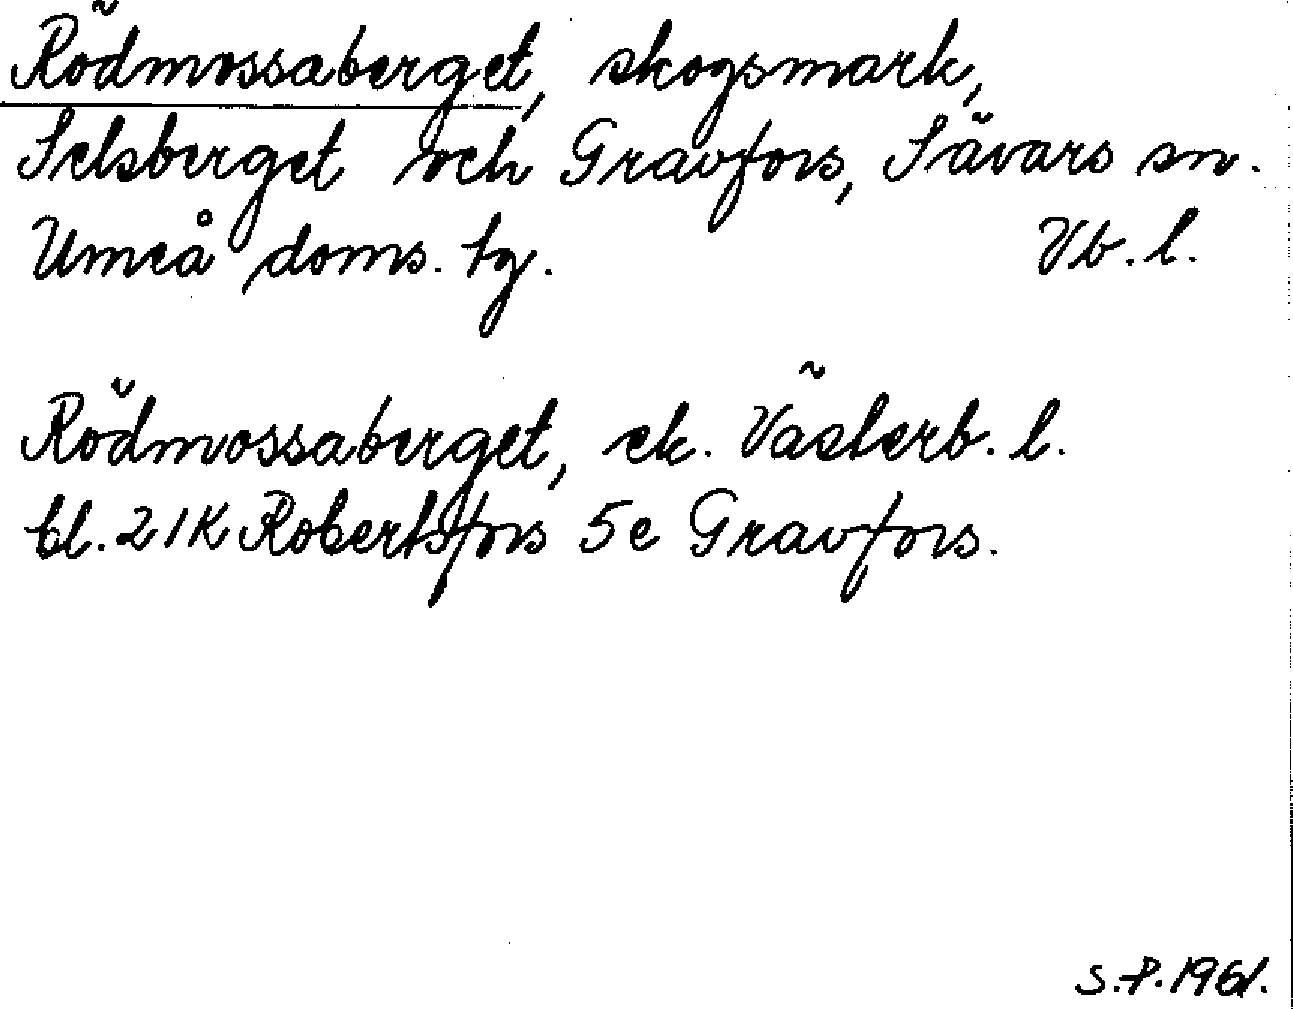 Rödmossaberget, skogsmark,
Selsberget och Gravfors, Sävars sn.
Umeå doms. tg. Vb. l.
Rödmossaberget, ek. Västerb. l.
bl. 21K Robertsfors 5e Gravfors.
S.P. 1961.